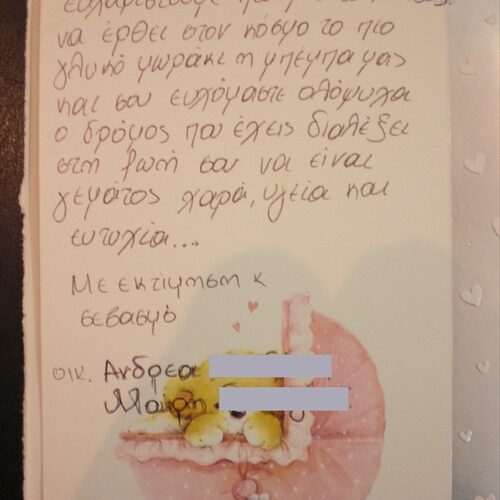 να έρθει στον κόσμο το πιο
γλυκό μωράκι η μπέμπα μας
και σου ευχόμαστε ολόψυχα
ο δρόμος που έχεις διαλέξει
στη ζωή σου να είναι
γεμάτος χαρά, υγεία και
ευτυχία...
Με εκτίμηση κ
σεβασμό
οικ. Ανδρεα
Μαιρη